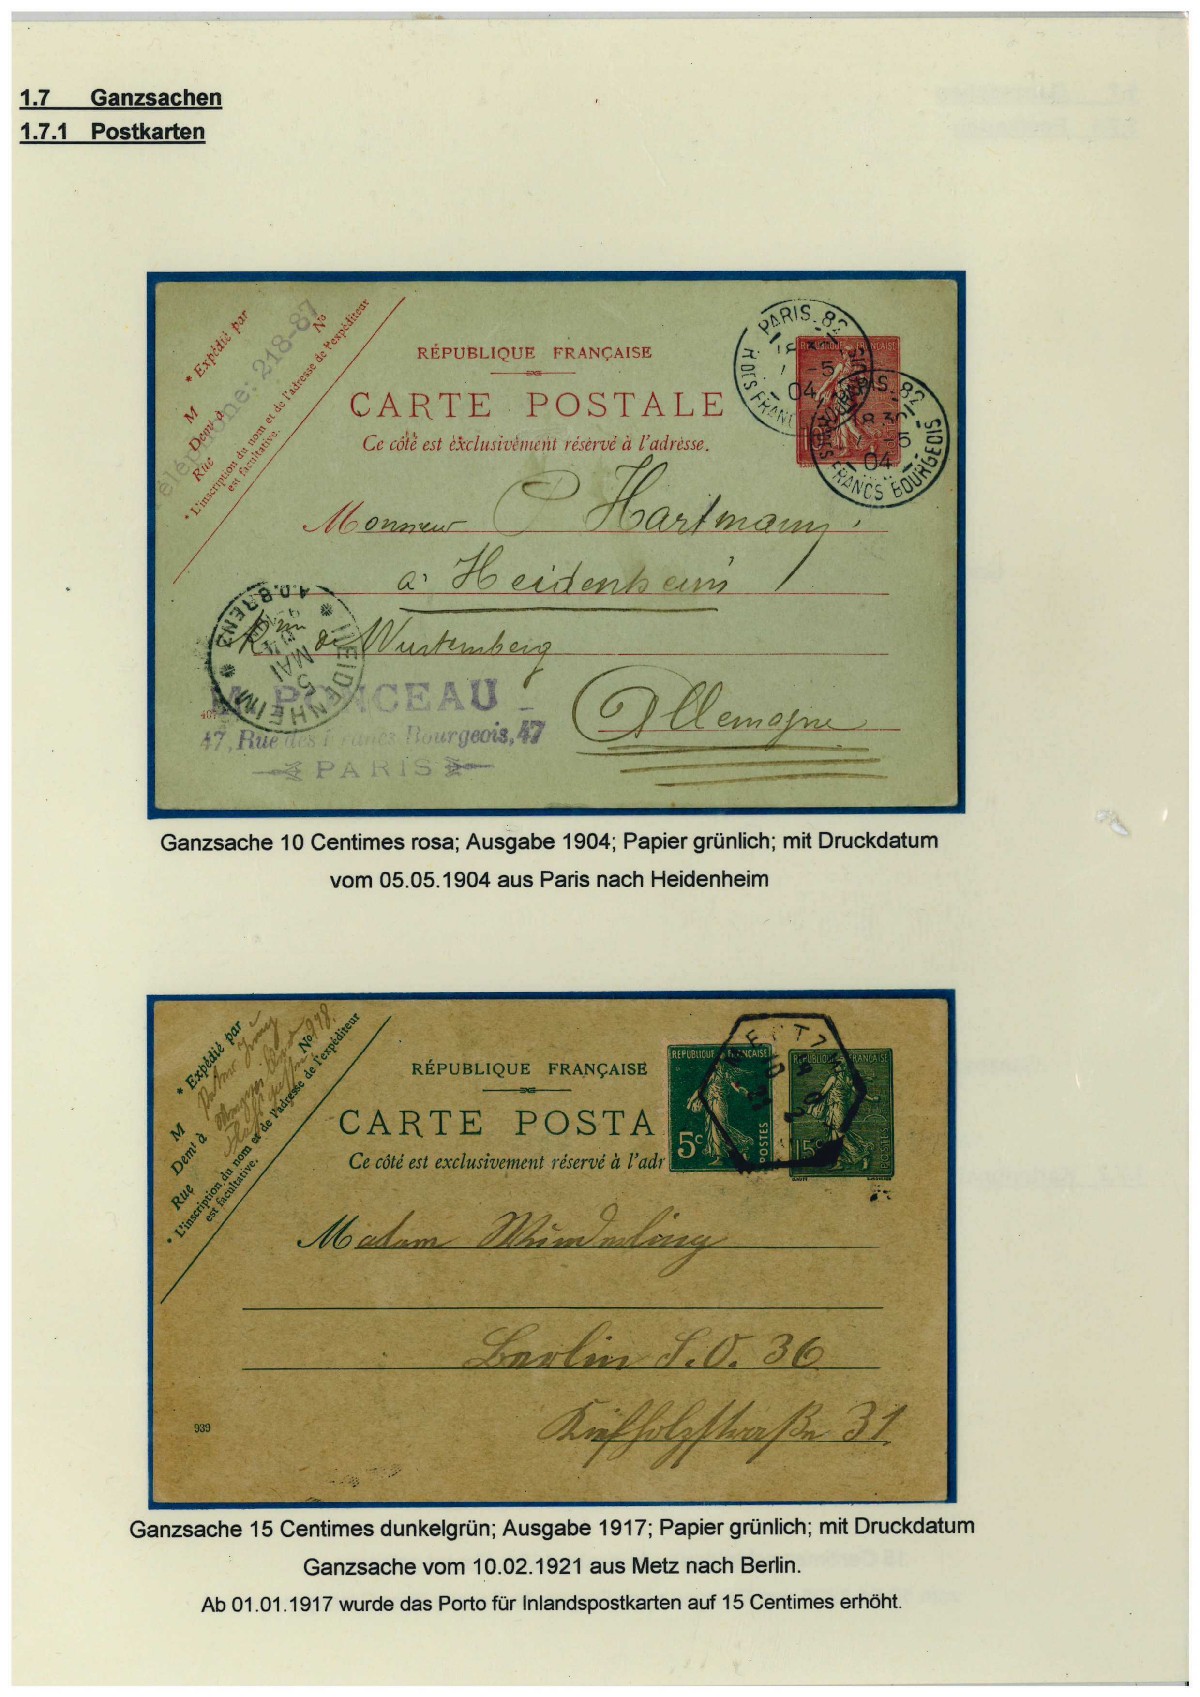 1.7 Ganzsachen
1.7.1 Postkarten
* Expédié par
M
Demt à
Rue
No
* L'inscription du nom et de l'adresse de l'expéditeur
est facultative.
Téléphone: 218-87
RÉPUBLIQUE FRANÇAISE
CARTE POSTALE
Ce côté est exclusivement réservé à l'adresse.
PARIS. 82
R. DES FRANCS BOURGEOIS
5
04
PARIS. 82
R. DES FRANCS BOURGEOIS
8 30
5
04
Monsieur P Hartmann
à Heidenheim
Rme de Wurtemberg
Allemagne
* HEIDENHEIM *
A.D.BRENZ
5
MAI
04
PONCEAU
47, Rue des Francs Bourgeois, 47
PARIS
Ganzsache 10 Centimes rosa; Ausgabe 1904; Papier grünlich; mit Druckdatum
vom 05.05.1904 aus Paris nach Heidenheim
* Expédié par
M
Demt à
Rue
No 978.
* L'inscription du nom et de l'adresse de l'expéditeur
est facultative.
RÉPUBLIQUE FRANÇAISE
CARTE POSTA
Ce côté est exclusivement réservé à l'adr
RÉPUBLIQUE FRANÇAISE
5c
POSTES
RÉPUBLIQUE FRANÇAISE
15c
POSTES
METZ
Madam Wunderling
Berlin S.O. 36
Kiefholzstraße 31.
939
Ganzsache 15 Centimes dunkelgrün; Ausgabe 1917; Papier grünlich; mit Druckdatum
Ganzsache vom 10.02.1921 aus Metz nach Berlin.
Ab 01.01.1917 wurde das Porto für Inlandspostkarten auf 15 Centimes erhöht.